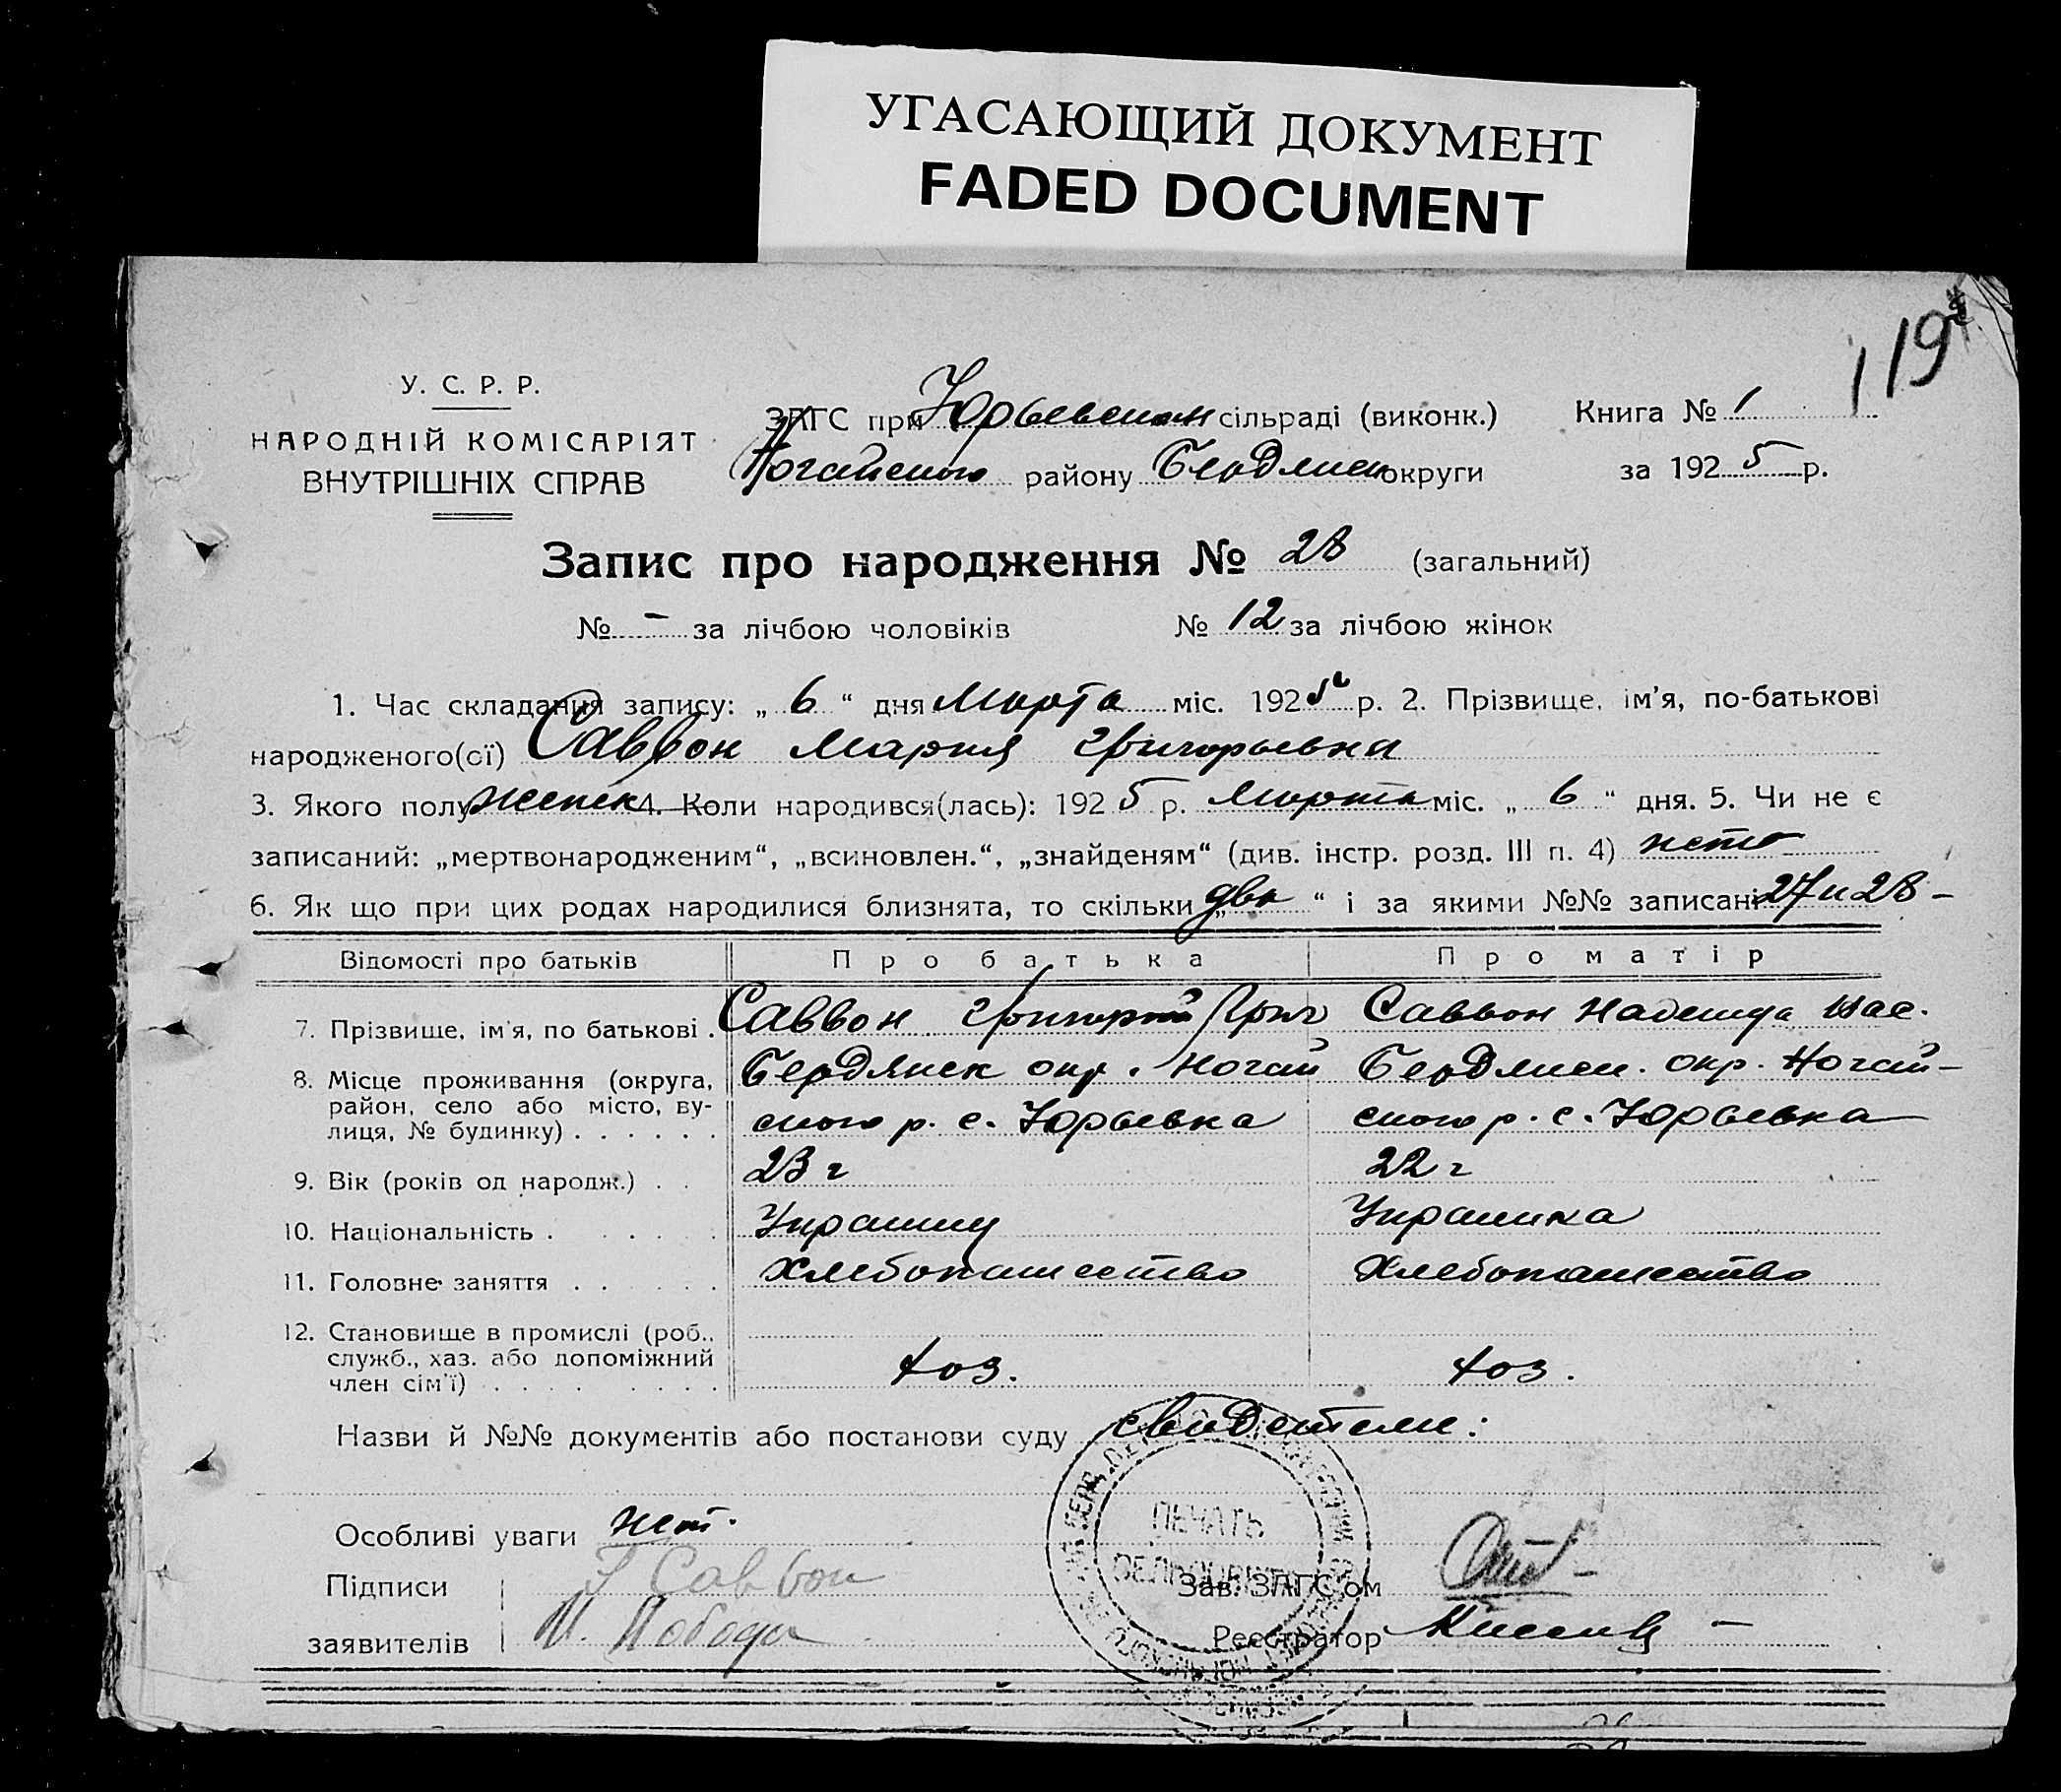 УГАСАЮЩИЙ ДОКУМЕНТ
FADED DOCUMENT
119
У. С. Р. Р.
НАРОДНІЙ КОМІСАРІЯТ
ВНУТРІШНІХ СПРАВ
ЗАГС при Юрьевском сільраді (виконк.) Книга № 1
Ногайского району Бердянск округи за 1925 р.
Запис про народження № 28 (загальний)
№ - за лічбою чоловіків № 12 за лічбою жінок
1. Час складання запису: „ 6 “ дня Марта міс. 1925 р. 2. Прізвище, ім’я, по-батькові
народженого(ої) Саввон Мария Григорьевна
3. Якого полу женск 4. Коли народився(лась): 1925 р. Марта міс. „ 6 “ дня. 5. Чи не є
записаний: „мертвонародженим“, „всиновлен.“, „знайденям“ (див. інстр. розд. III п. 4) нет
6. Як що при цих родах народилися близнята, то скільки „ два “ і за якими №№ записані 27 и 28 -
Відомості про батьків Про батька Про матір
7. Прізвище, ім’я, по батькові . Саввон Григорий Григ Саввон Надежда Вас.
8. Місце проживання (округа, Бердянск окр. Ногай Бердянск. окр. Ногай-
район, село або місто, ву- ского р. с. Юрьевка ского р. с. Юрьевка
лиця, № будинку) . . . . . .
9. Вік (років од народж.) . . 23 г 22 г
10. Національність . . . . . . Украинц Украинка
11. Головне заняття . . . . . Хлебопашество Хлебопашество
12. Становище в промислі (роб.,
служб., хаз. або допоміжний хоз. хоз.
член сім’ї) . . . . . . . . .
Назви й №№ документів або постанови суду свидетели:
Особливі уваги нет.
Підписи Г Саввон Зав. ЗАГС’ом
заявителів И. Лобода Реєстратор
ПЕЧАТЬ